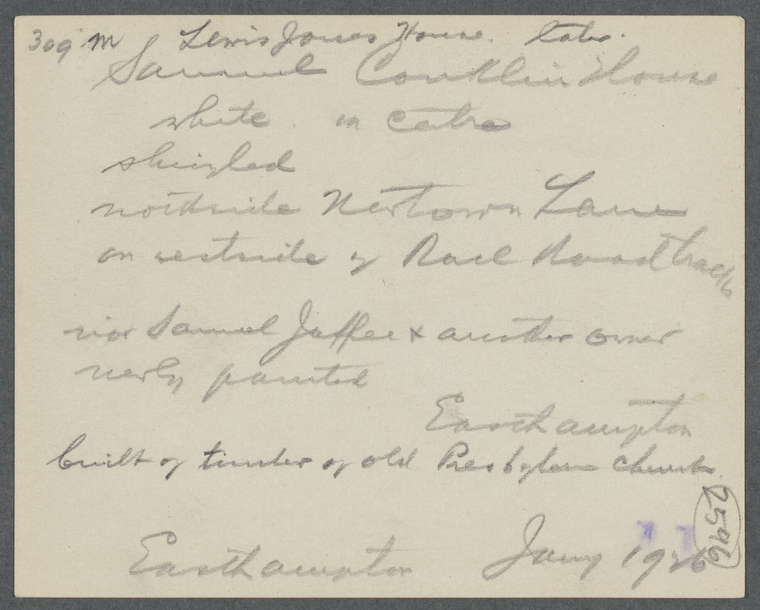 309 m Lewis Jones House. later.
Samuel Conklin House
white in
shingled
northside Newtown Lane
on westside of Rail Road tracks
now Samuel Jaffee & another owner
newly painted
Easthampton
built of timber of old Presbyterian church.
2596
Easthampton Jany 1926